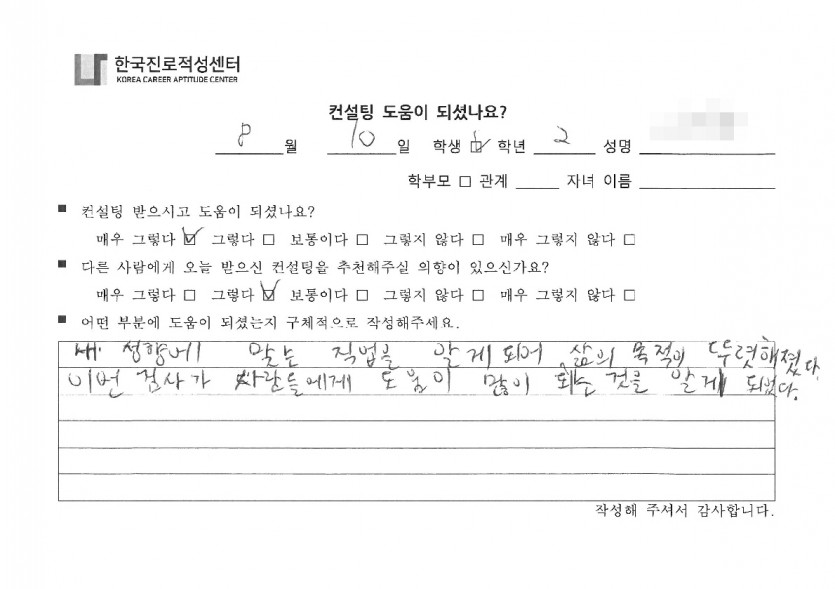 한국진로적성센터
KOREA CAREER APTITUDE CENTER
컨설팅 도움이 되셨나요?
8 월 10 일 학생 ☑ 학년 2 성명
학부모 □ 관계 자녀 이름
■ 컨설팅 받으시고 도움이 되셨나요?
매우 그렇다 ☑ 그렇다 □ 보통이다 □ 그렇지 않다 □ 매우 그렇지 않다 □
■ 다른 사람에게 오늘 받으신 컨설팅을 추천해주실 의향이 있으신가요?
매우 그렇다 □ 그렇다 ☑ 보통이다 □ 그렇지 않다 □ 매우 그렇지 않다 □
■ 어떤 부분에 도움이 되셨는지 구체적으로 작성해주세요.
내 성향에 맞는 직업을 알게되어 삶의 목적이 뚜렷해졌다.
이번 검사가 사람들에게 도움이 많이 되는 것을 알게 되었다.
작성해 주셔서 감사합니다.